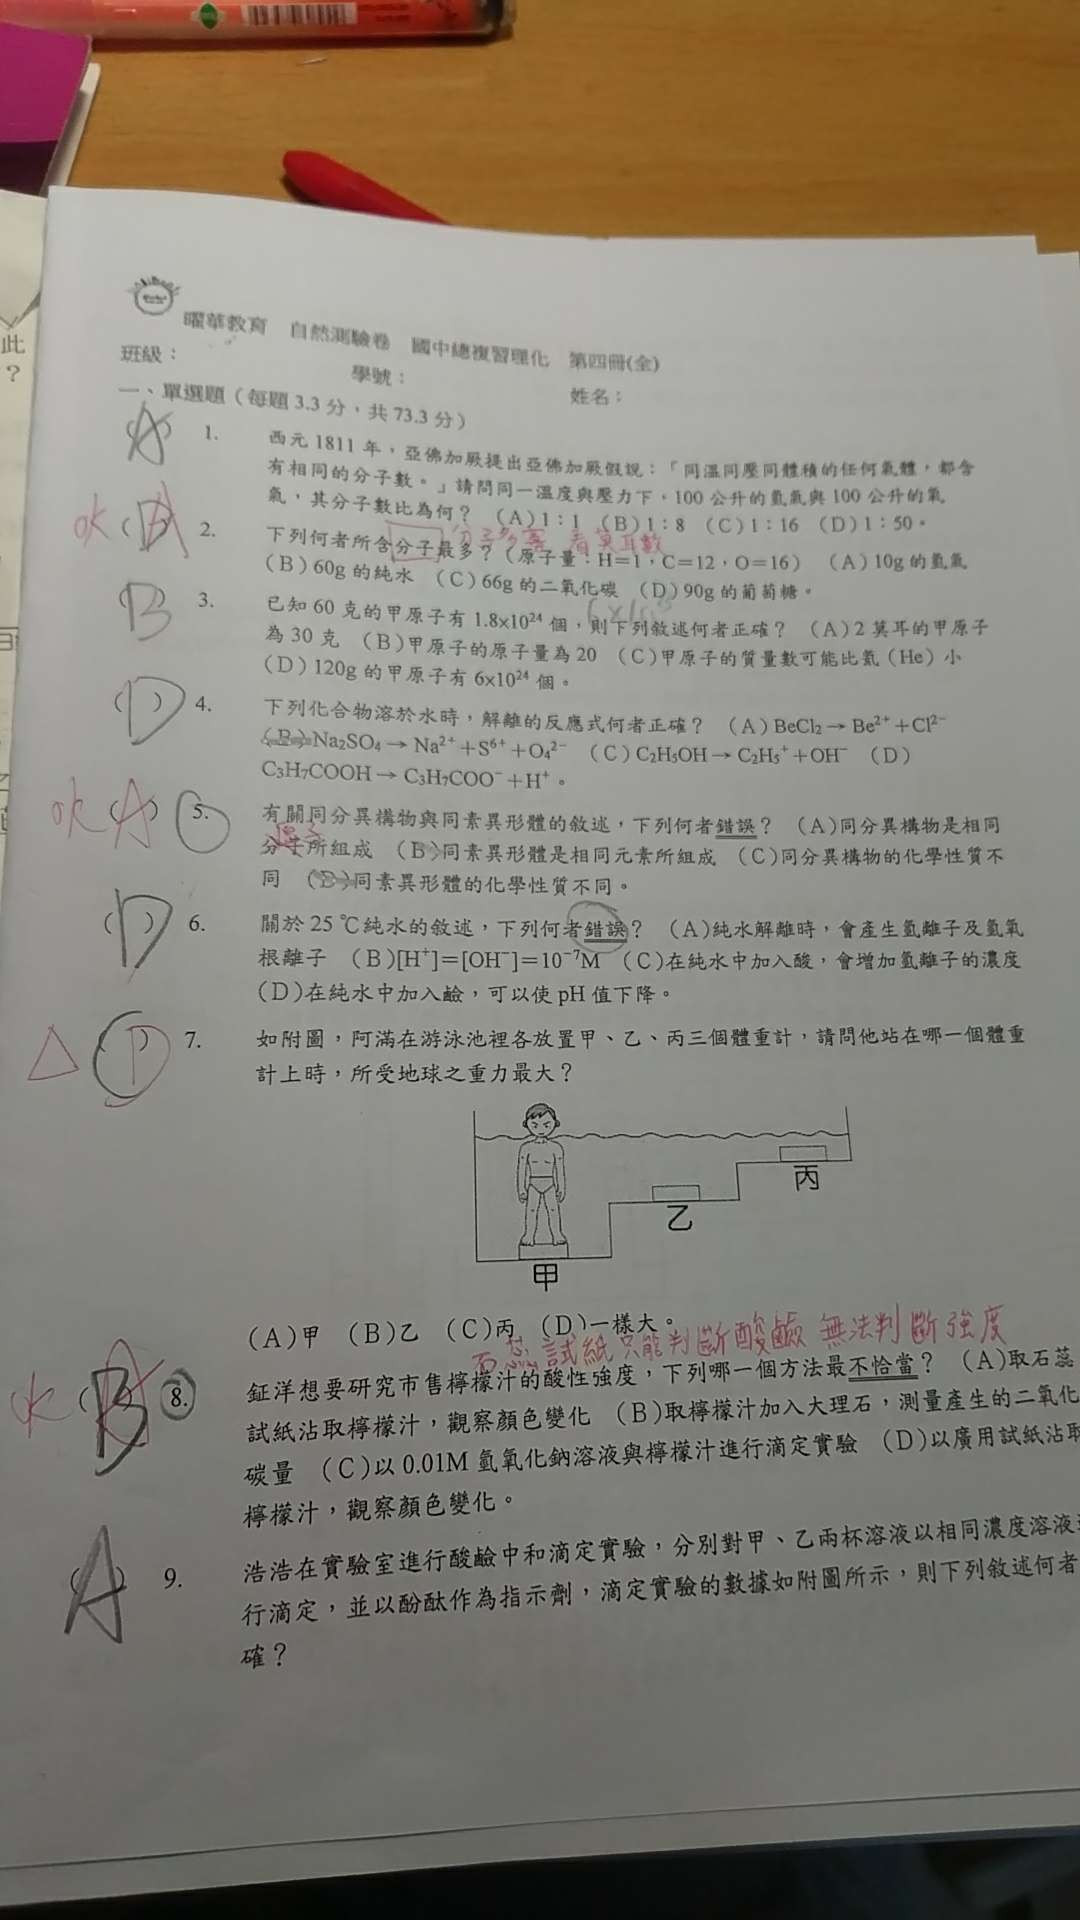 曜華教育 自然測驗卷 國中總複習理化 第四冊(全)
班級： 學號： 姓名：
一、單選題（每題 3.3 分，共 73.3 分）
(A) 1. 西元 1811 年，亞佛加厥提出亞佛加厥假說：「同溫同壓同體積的任何氣體，都含
有相同的分子數。」請問同一溫度與壓力下，100 公升的氫氣與 100 公升的氧
氣，其分子數比為何？ (A)1：1 (B)1：8 (C)1：16 (D)1：50。
分子多寡 看莫耳數
ok (A) 2. 下列何者所含分子最多？（原子量：H=1，C=12，O=16） (A)10g 的氫氣
(B)60g 的純水 (C)66g 的二氧化碳 (D)90g 的葡萄糖。
(B) 3. 已知 60 克的甲原子有 1.8×10²⁴ 個，則下列敘述何者正確？ (A)2 莫耳的甲原子
為 30 克 (B)甲原子的原子量為 20 (C)甲原子的質量數可能比氦（He）小
(D)120g 的甲原子有 6×10²⁴ 個。
(D) 4. 下列化合物溶於水時，解離的反應式何者正確？ (A)BeCl₂→Be²⁺+Cl²⁻
(B)Na₂SO₄→Na²⁺+S⁶⁺+O₄²⁻ (C)C₂H₅OH→C₂H₅⁺+OH⁻ (D)
C₃H₇COOH→C₃H₇COO⁻+H⁺。
ok (A) 5. 有關同分異構物與同素異形體的敘述，下列何者錯誤？ (A)同分異構物是相同
原子
分子所組成 (B)同素異形體是相同元素所組成 (C)同分異構物的化學性質不
同 (D)同素異形體的化學性質不同。
(D) 6. 關於 25℃純水的敘述，下列何者錯誤？ (A)純水解離時，會產生氫離子及氫氧
根離子 (B)[H⁺]=[OH⁻]=10⁻⁷M (C)在純水中加入酸，會增加氫離子的濃度
(D)在純水中加入鹼，可以使 pH 值下降。
△ ( ) 7. 如附圖，阿滿在游泳池裡各放置甲、乙、丙三個體重計，請問他站在哪一個體重
計上時，所受地球之重力最大？
丙
乙
甲
(A)甲 (B)乙 (C)丙 (D)一樣大。
石蕊試紙只能判斷酸鹼 無法判斷強度
8. 鉦洋想要研究市售檸檬汁的酸性強度，下列哪一個方法最不恰當？ (A)取石蕊
試紙沾取檸檬汁，觀察顏色變化 (B)取檸檬汁加入大理石，測量產生的二氧化
碳量 (C)以 0.01M 氫氧化鈉溶液與檸檬汁進行滴定實驗 (D)以廣用試紙沾取
檸檬汁，觀察顏色變化。
(A) 9. 浩浩在實驗室進行酸鹼中和滴定實驗，分別對甲、乙兩杯溶液以相同濃度溶液
行滴定，並以酚酞作為指示劑，滴定實驗的數據如附圖所示，則下列敘述何者
確？
此
？